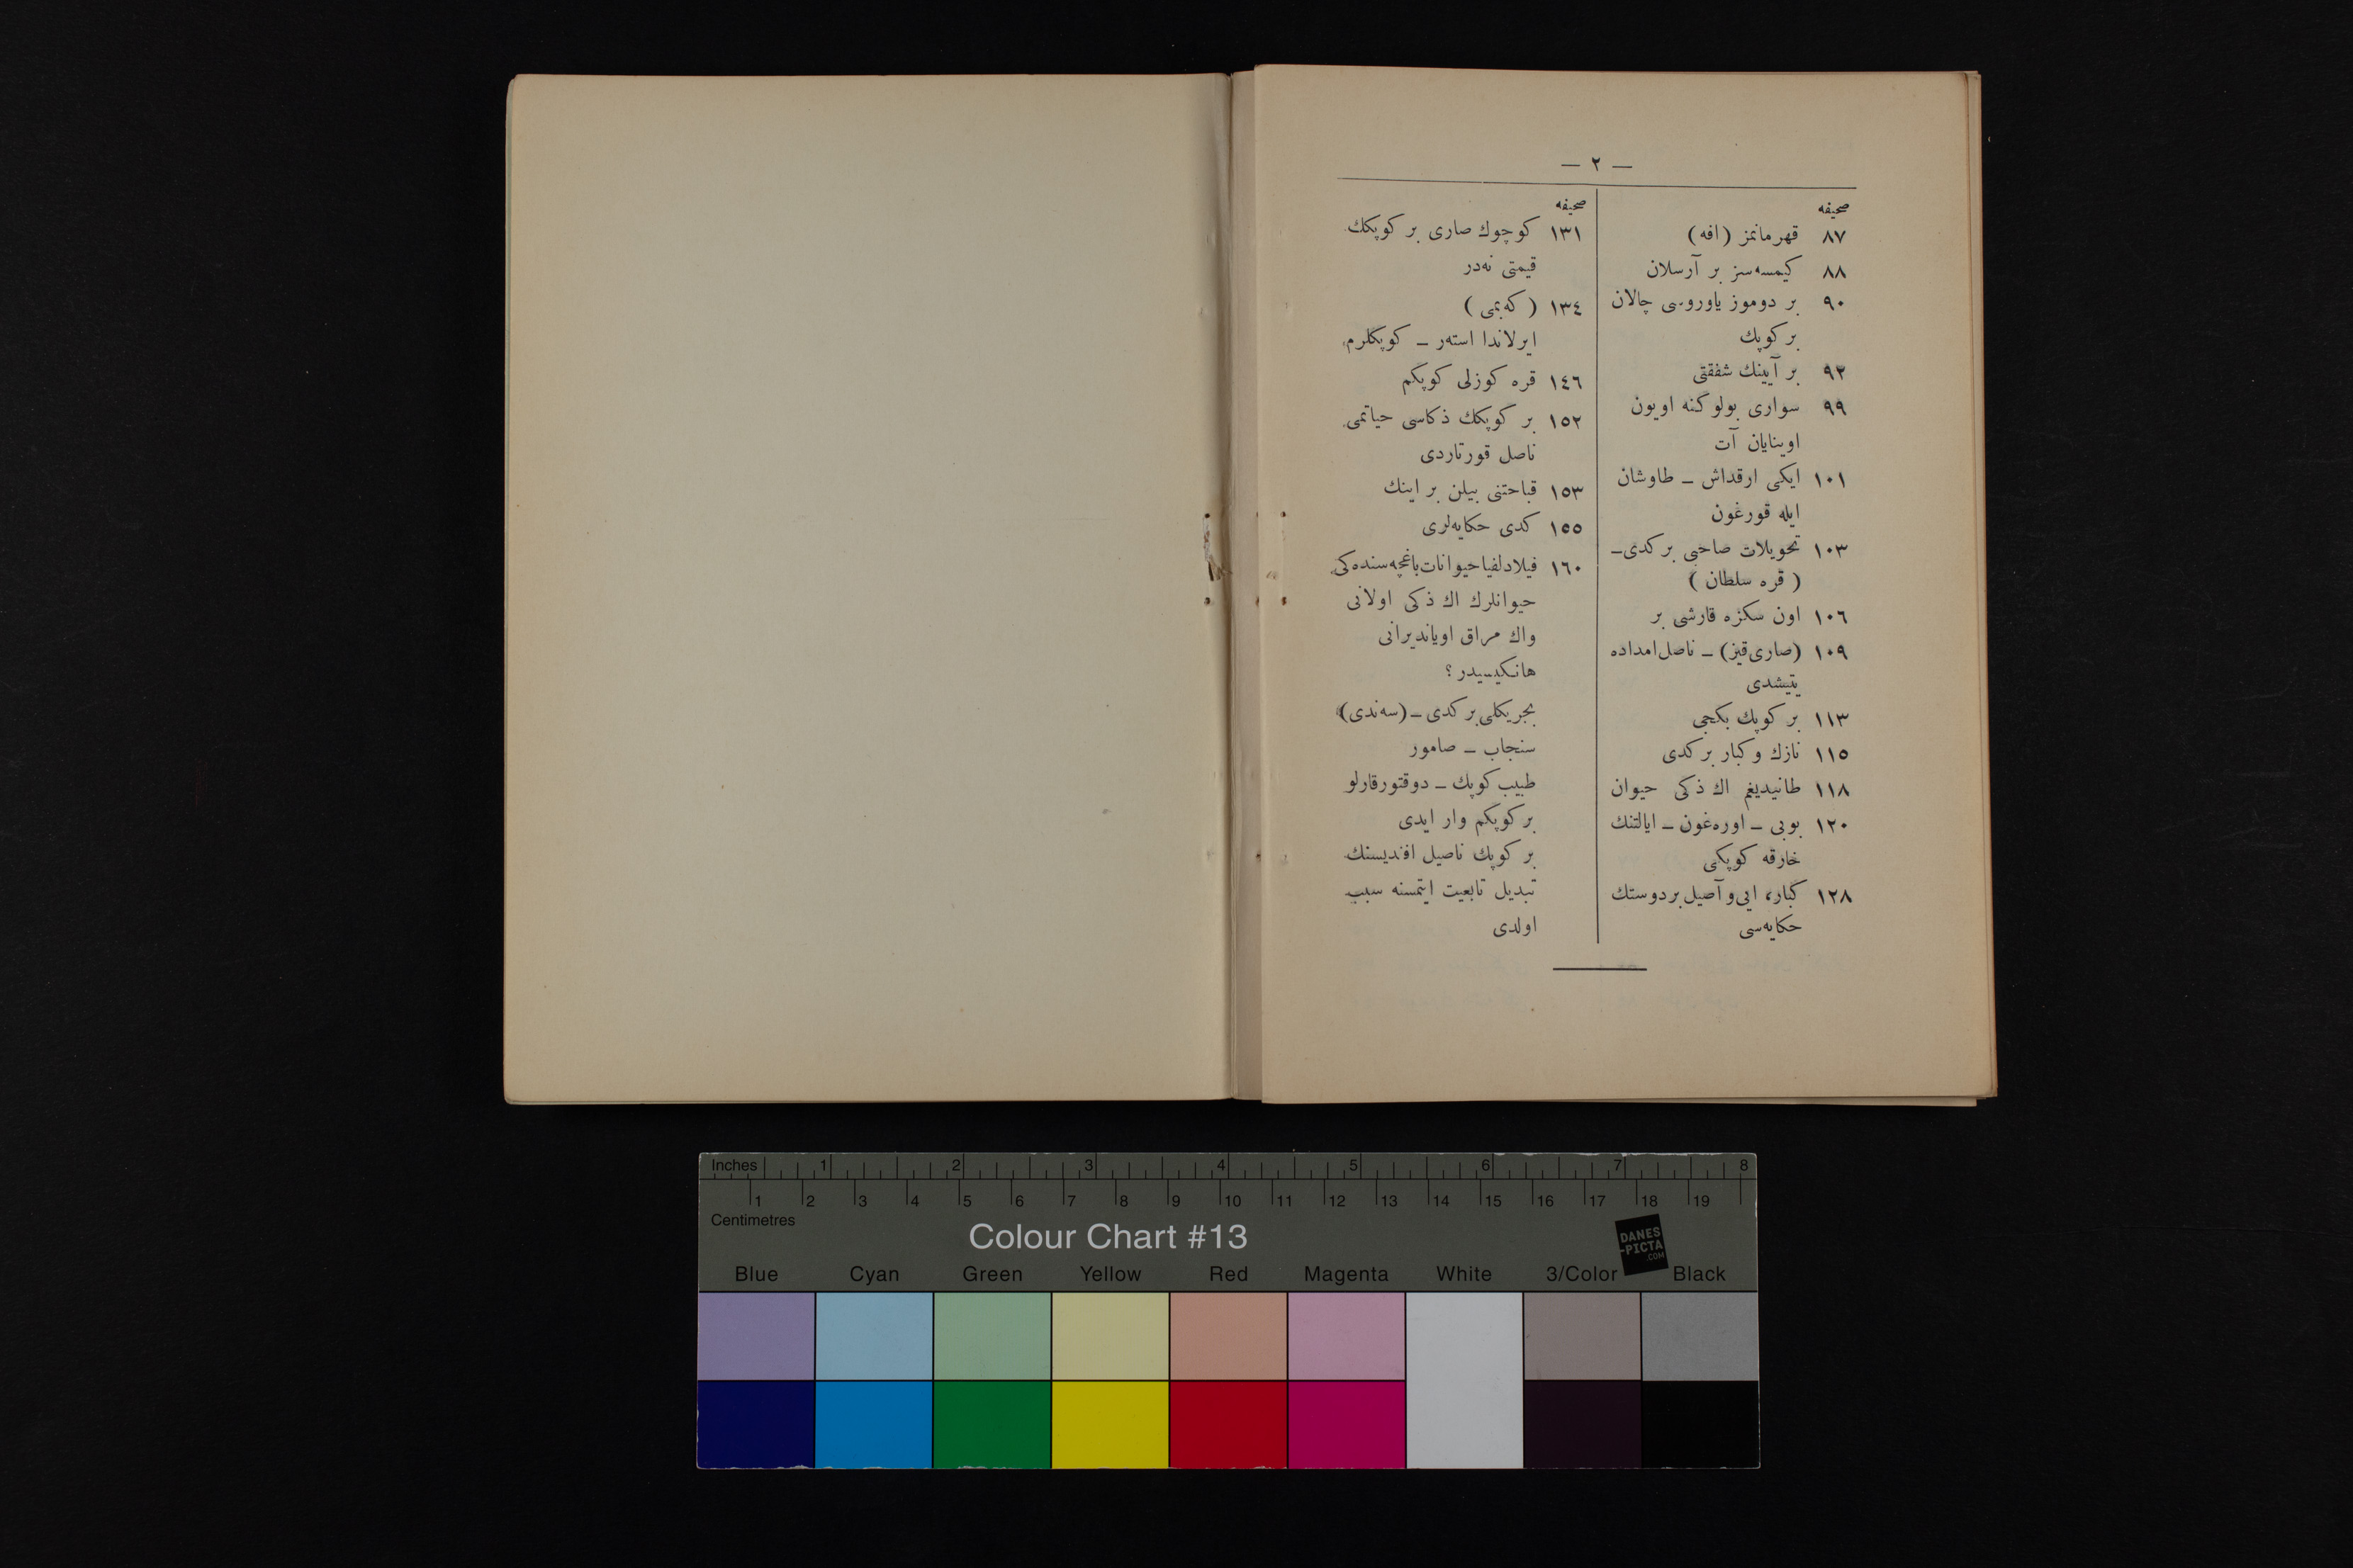 — ٢ —
صحيفه
٨٧ قهرمانمز (افه)
٨٨ كيمسه‌سز بر آرسلان
٩٠ بر دوموز ياوروسى چالان
بر كوپك
٩٣ بر آيينك شفقتى
٩٩ سوارى بولوكنه اويون
اوينايان آت
١٠١ ايكى ارقداش ـ طاوشان
ايله قورغون
١٠٣ تحويلات صاحبى بر كدى ـ
( قره سلطان )
١٠٦ اون سكزه قارشى بر
١٠٩ (صارى قيز) ـ ناصل امداده
يتيشدى
١١٣ بر كوپك بكجى
١١٥ نازك و كبار بر كدى
١١٨ طانيديغم اك ذكى حيوان
١٢٠ بوبى ـ اوره‌غون ـ ايالتنك
خارقه كوپكى
١٢٨ كبار، ايى و آصيل بر دوستك
حكايه‌سى
صحيفه
١٣١ كوچوك صارى بر كوپكك
قيمتى نه‌در
١٣٤ ( كه‌يمى )
ايرلاندا استه‌ر ـ كوپكلرم
١٤٦ قره كوزلى كوپكم
١٥٢ بر كوپكك ذكاسى حياتمى
ناصل قورتاردى
١٥٣ قباحتنى بيلن بر اينك
١٥٥ كدى حكايه‌لرى
١٦٠ فيلادلفيا حيوانات باغچه‌سنده‌كى
حيوانلرك اك ذكى اولانى
واك مراق اويانديرانى
هانكيسيدر ؟
بجريكلى بر كدى ـ (سه‌ندى)
سنجاب ـ صامور
طبيب كوپك ـ دوقتور قارلو
بر كوپكم وار ايدى
بر كوپك ناصيل افنديسنك
تبديل تابعيت ايتمسنه سبب
اولدى
Inches 1 2 3 4 5 6 7 8
1 2 3 4 5 6 7 8 9 10 11 12 13 14 15 16 17 18 19
Centimetres
Colour Chart #13
DANES
-PICTA
.COM
Blue Cyan Green Yellow Red Magenta White 3/Color Black